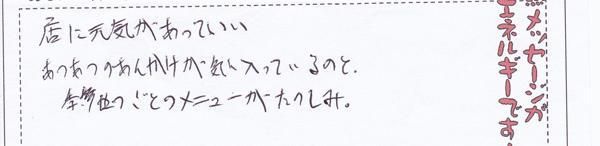 居に元気があっていい
あつあつのあんかけが気に入っているのと、
ごとのメニューがたのしみ。
メッセージが
エネルギーです!